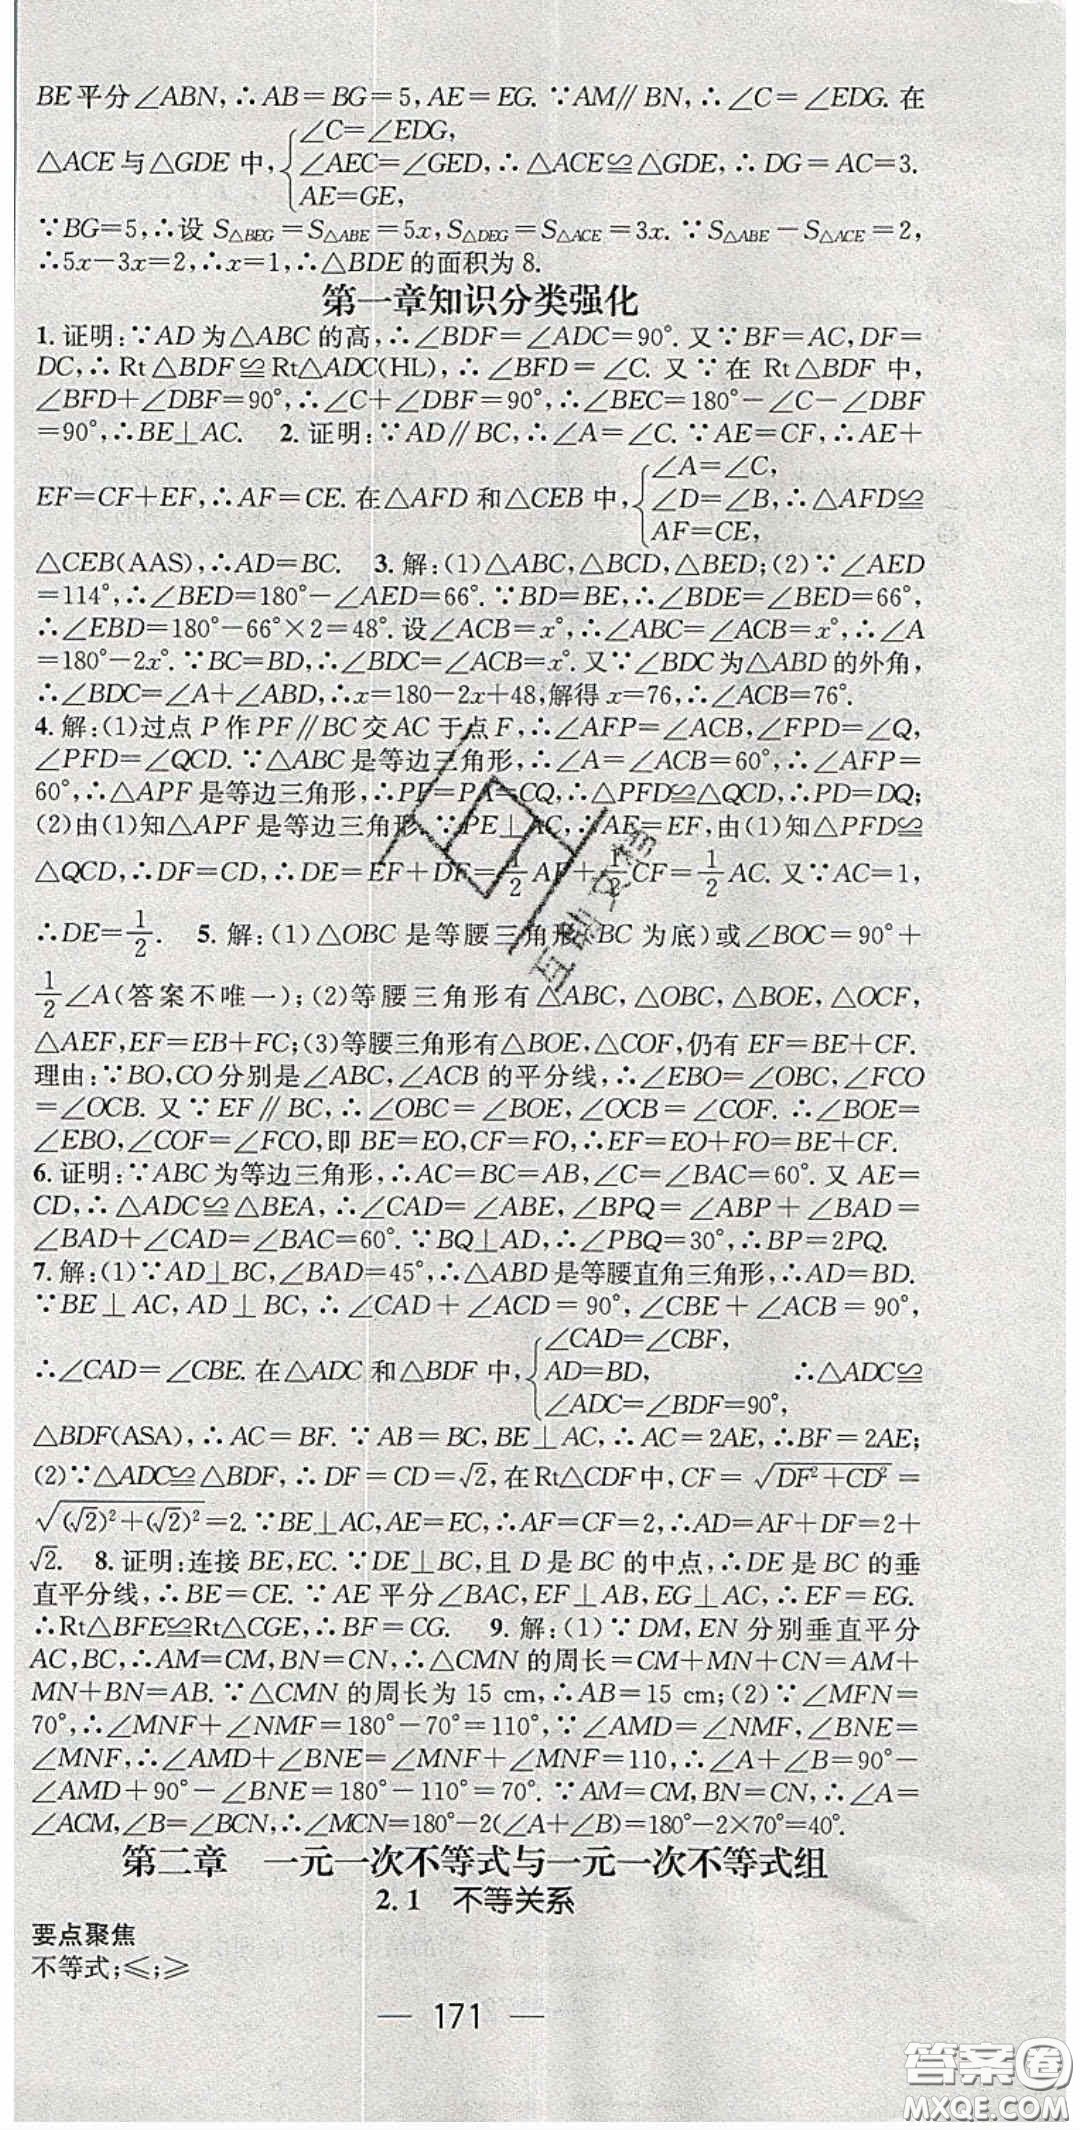 BE平分∠ABN,∴AB=BG=5,AE=EG.∵AM∥BN,∴∠C=∠EDG.在
∠C=∠EDG,
△ACE与△GDE中,{∠AEC=∠GED,∴△ACE≌△GDE,∴DG=AC=3.
AE=GE,
∵BG=5,∴设S△BEG=S△ABE=5x,S△DEG=S△ACE=3x.∵S△ABE-S△ACE=2,
∴5x-3x=2,∴x=1,∴△BDE的面积为8.
第一章知识分类强化
1.证明:∵AD为△ABC的高,∴∠BDF=∠ADC=90°.又∵BF=AC,DF=
DC,∴Rt△BDF≌Rt△ADC(HL),∴∠BFD=∠C.又∵在Rt△BDF中,
∠BFD+∠DBF=90°,∴∠C+∠DBF=90°,∴∠BEC=180°-∠C-∠DBF
=90°,∴BE⊥AC. 2.证明:∵AD∥BC,∴∠A=∠C.∵AE=CF,∴AE+
∠A=∠C,
EF=CF+EF,∴AF=CE.在△AFD和△CEB中,{∠D=∠B,∴△AFD≌
AF=CE,
△CEB(AAS),∴AD=BC. 3.解:(1)△ABC,△BCD,△BED;(2)∵∠AED
=114°,∴∠BED=180°-∠AED=66°.∵BD=BE,∴∠BDE=∠BED=66°,
∴∠EBD=180°-66°×2=48°.设∠ACB=x°,∴∠ABC=∠ACB=x°,∴∠A
=180°-2x°.∵BC=BD,∴∠BDC=∠ACB=x°.又∵∠BDC为△ABD的外角,
∴∠BDC=∠A+∠ABD,∴x=180-2x+48,解得x=76,∴∠ACB=76°.
4.解:(1)过点P作PF∥BC交AC于点F,∴∠AFP=∠ACB,∠FPD=∠Q,
∠PFD=∠QCD.∵△ABC是等边三角形,∴∠A=∠ACB=60°,∴∠AFP=
60°,∴△APF是等边三角形,∴PF=PA=CQ,∴△PFD≌△QCD,∴PD=DQ;
(2)由(1)知△APF是等边三角形,∵PE⊥AC,∴AE=EF,由(1)知△PFD≌
△QCD,∴DF=CD,∴DE=EF+DF=1/2AF+1/2CF=1/2AC.又∵AC=1,
∴DE=1/2. 5.解:(1)△OBC是等腰三角形(BC为底)或∠BOC=90°+
1/2∠A(答案不唯一);(2)等腰三角形有△ABC,△OBC,△BOE,△OCF,
△AEF,EF=EB+FC;(3)等腰三角形有△BOE,△COF,仍有EF=BE+CF.
理由:∵BO,CO分别是∠ABC,∠ACB的平分线,∴∠EBO=∠OBC,∠FCO
=∠OCB.又∵EF∥BC,∴∠OBC=∠BOE,∠OCB=∠COF.∴∠BOE=
∠EBO,∠COF=∠FCO,即BE=EO,CF=FO,∴EF=EO+FO=BE+CF.
6.证明:∵ABC为等边三角形,∴AC=BC=AB,∠C=∠BAC=60°.又AE=
CD,∴△ADC≌△BEA,∴∠CAD=∠ABE,∠BPQ=∠ABP+∠BAD=
∠BAD+∠CAD=∠BAC=60°.∵BQ⊥AD,∴∠PBQ=30°,∴BP=2PQ.
7.解:(1)∵AD⊥BC,∠BAD=45°,∴△ABD是等腰直角三角形,∴AD=BD.
∵BE⊥AC,AD⊥BC,∴∠CAD+∠ACD=90°,∠CBE+∠ACB=90°,
∠CAD=∠CBF,
∴∠CAD=∠CBE.在△ADC和△BDF中,{AD=BD, ∴△ADC≌
∠ADC=∠BDF=90°,
△BDF(ASA),∴AC=BF.∵AB=BC,BE⊥AC,∴AC=2AE,∴BF=2AE;
(2)∵△ADC≌△BDF,∴DF=CD=√2,在Rt△CDF中,CF=√(DF²+CD²)=
√((√2)²+(√2)²)=2.∵BE⊥AC,AE=EC,∴AF=CF=2,∴AD=AF+DF=2+
√2. 8.证明:连接BE,EC.∵DE⊥BC,且D是BC的中点,∴DE是BC的垂
直平分线,∴BE=CE.∵AE平分∠BAC,EF⊥AB,EG⊥AC,∴EF=EG.
∴Rt△BFE≌Rt△CGE,∴BF=CG. 9.解:(1)∵DM,EN分别垂直平分
AC,BC,∴AM=CM,BN=CN,∴△CMN的周长=CM+MN+CN=AM+
MN+BN=AB.∵△CMN的周长为15 cm,∴AB=15 cm;(2)∵∠MFN=
70°,∴∠MNF+∠NMF=180°-70°=110°,∵∠AMD=∠NMF,∠BNE=
∠MNF,∴∠AMD+∠BNE=∠MNF+∠MNF=110,∴∠A+∠B=90°-
∠AMD+90°-∠BNE=180°-110°=70°.∵AM=CM,BN=CN,∴∠A=
∠ACM,∠B=∠BCN,∴∠MCN=180°-2(∠A+∠B)=180°-2×70°=40°.
第二章 一元一次不等式与一元一次不等式组
2.1 不等关系
要点聚焦
不等式;≤;≥
— 171 —
答案圈
MXQE.COM